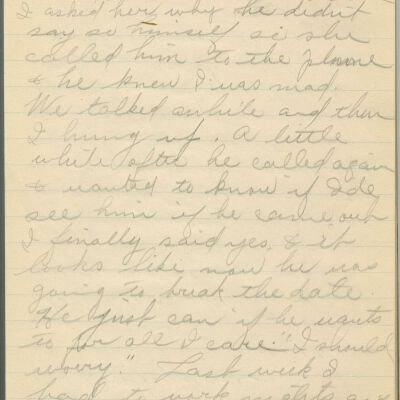 I asked her why he didn't
say so himself so she
called him to the phone
& he knew I was mad.
We talked awhile and then
I hung up. A little
while after he called again
& wanted to know if I'de
see him if he came out
I finally said yes. & it
looks like now he was
going to break the date.
He just can if he wants
to for all I care. "I should
worry." Last week I
had to work nights